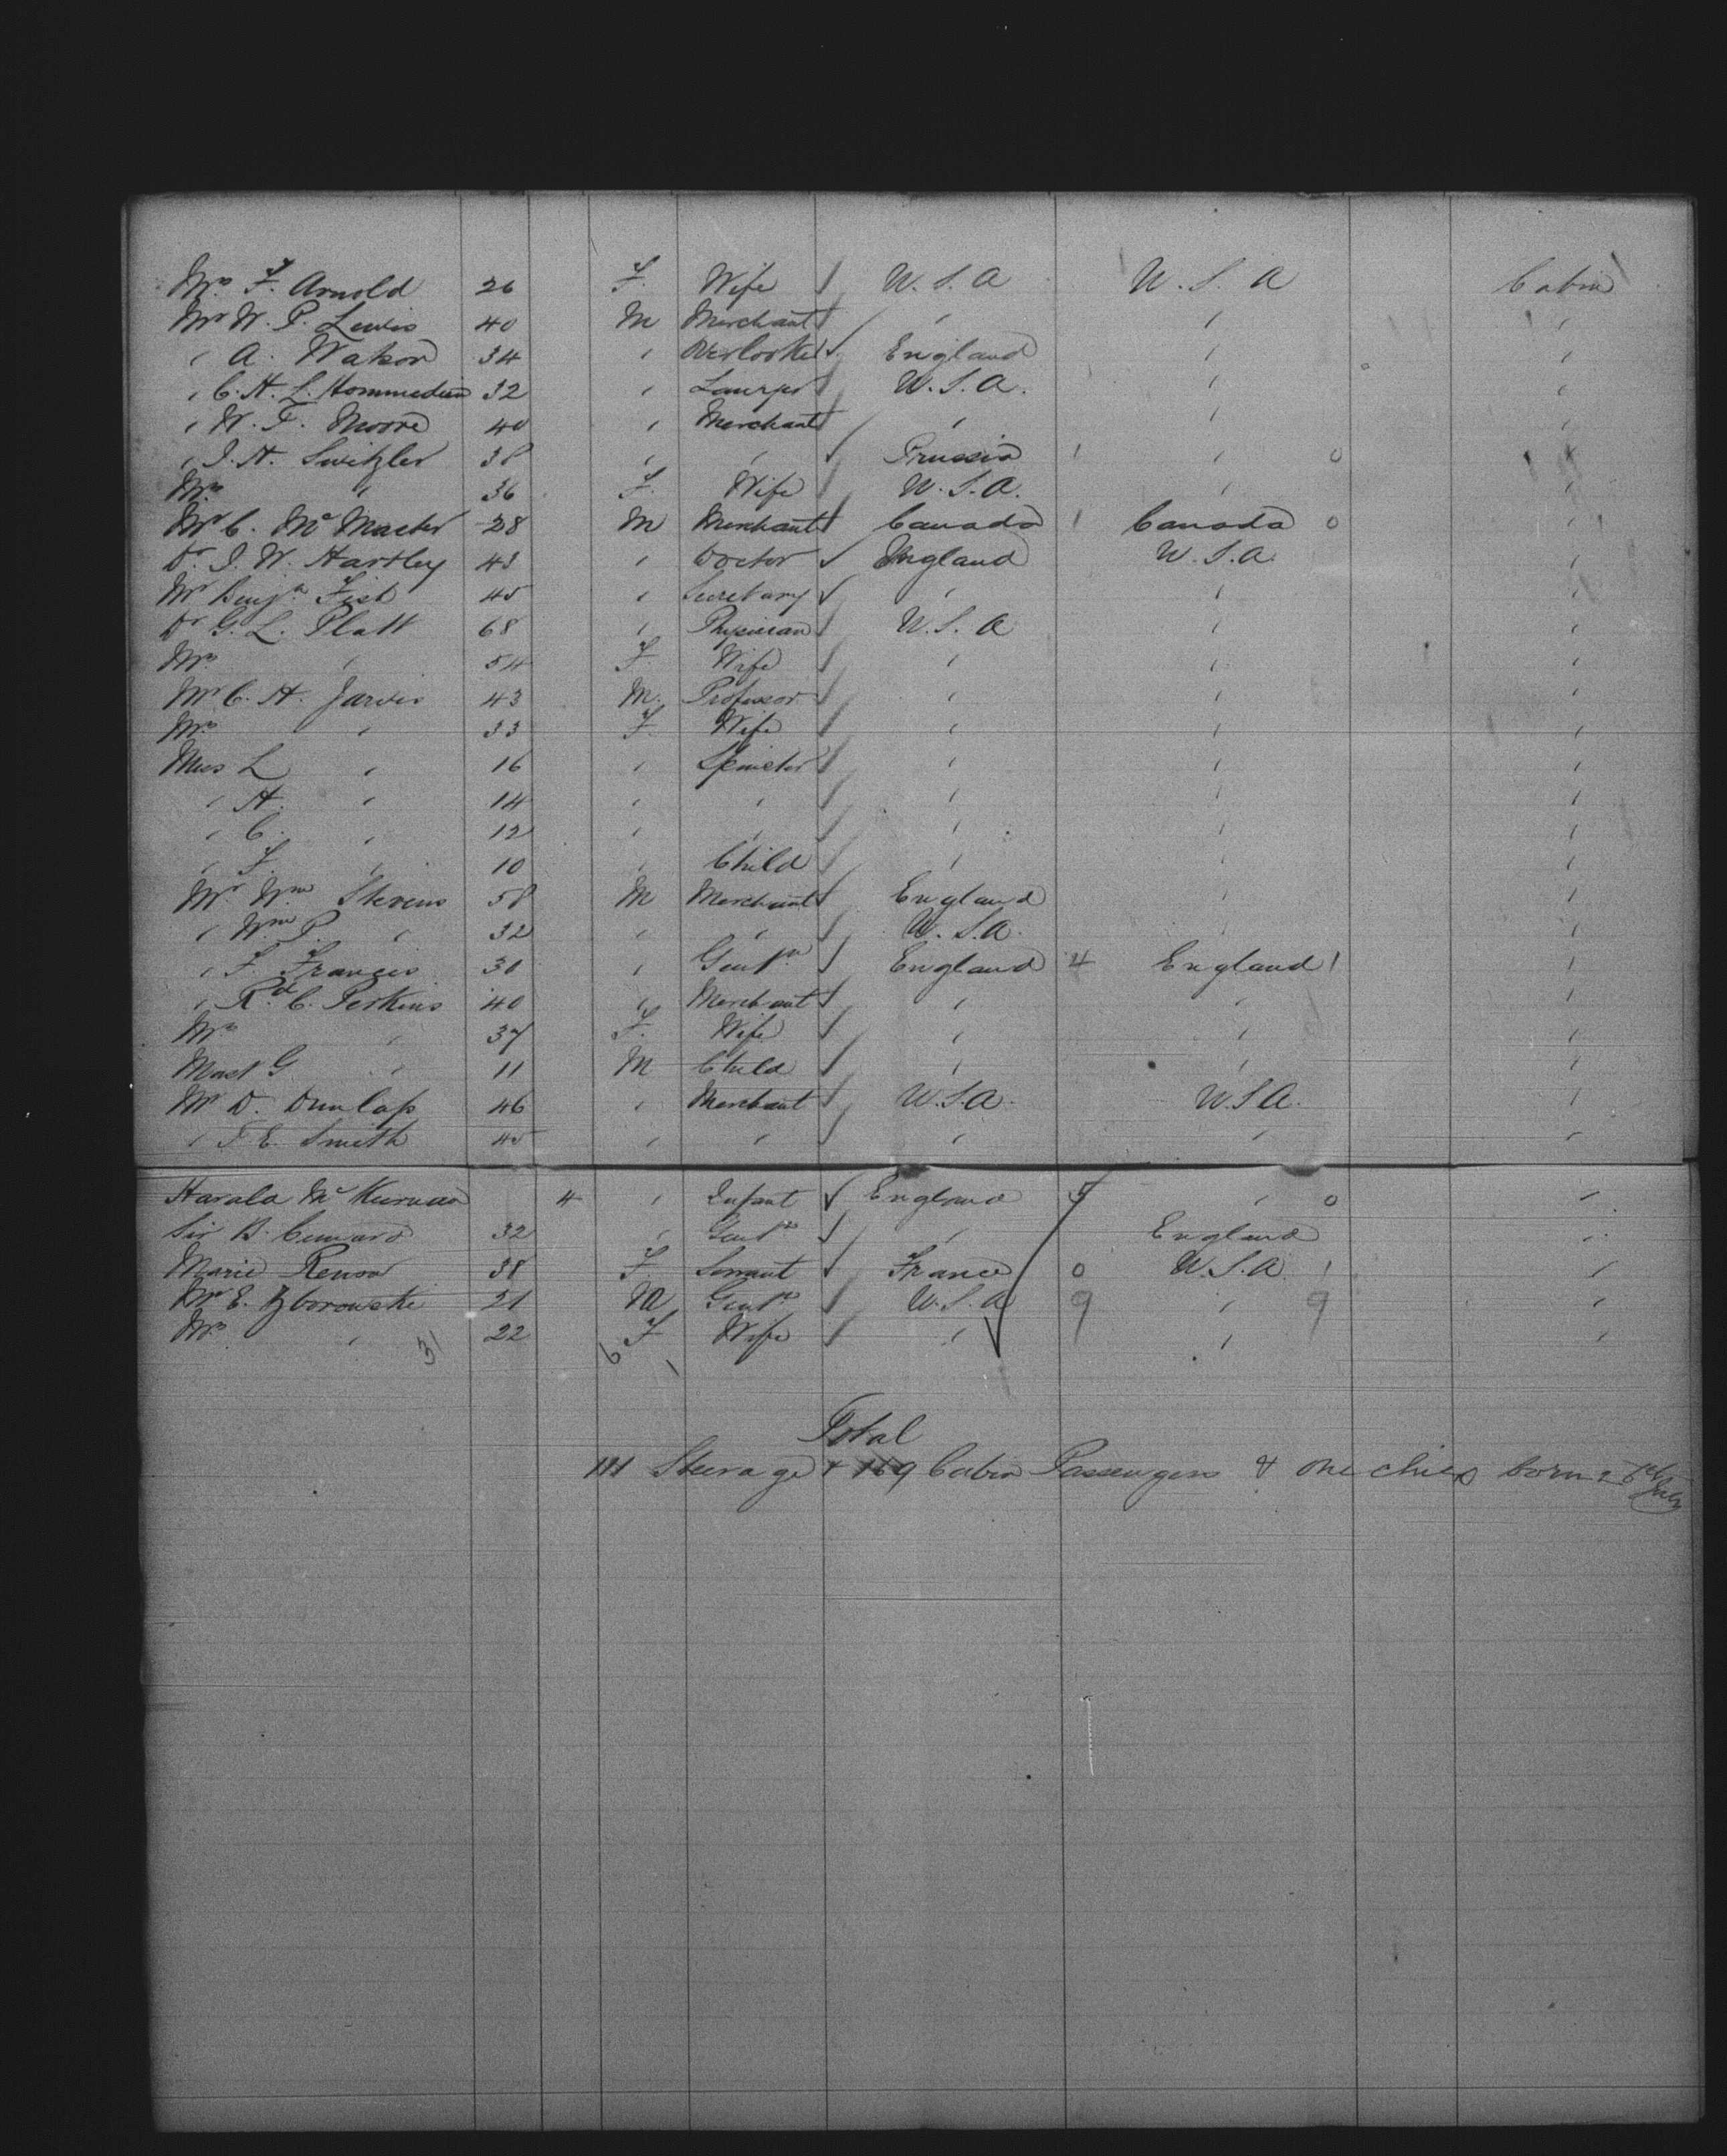 Mrs F. Arnold 26 F. Wife U.S.A U.S.A Cabin
Mr W. P. Lewis 40 M Merchant " " "
" A. Watson 34 " Overlooker England " "
" C. H. L. Hommedieu 32 " Lawyer U.S.A. " "
" W. F. Moore 40 " Merchant " " "
" J. H. Switzler 38 " " Prussia 1 " 0 "
Mrs " 36 F. Wife U.S.A. " "
Mr C. McMaster 28 M Merchant Canada 1 Canada 0 "
Dr J. W. Hartley 43 " Doctor England U.S.A. "
Mr Benjn Fish 45 " Secretary " " "
Dr G. L. Platt 68 " Physician U.S.A " "
Mrs " 54 F. Wife " " "
Mr C. H. Jarvis 43 M. Professor " " "
Mrs " 33 F. Wife " " "
Miss L " 16 " Spinster " " "
" H. " 14 " " " " "
" C. " 12 " " " " "
" F. " 10 " Child " " "
Mr Wm Stevens 58 M Merchant England " "
" Wm P. " 32 " " U.S.A. " "
" F. Francis 30 " Gentn England 4 England 1 "
" Rd C. Perkins 40 " Merchant " " "
Mrs " 37 F. Wife " " "
Mast G " 11 M Child " " "
Mr D. Dunlap 46 " Merchant U.S.A. U.S.A. "
" F. E. Smith 45 " " " " "
Harald 4 " Infant England 5 " 0 "
Sir B. Cunard 32 " Gentn " England "
Marie Renoa 38 F Servant France 0 U.S.A 1 "
Mr E. Zborowski 21 M Gentn U.S.A 9 " 9 "
Mrs " 22 F Wife " " "
31 6 1
Total
111 Steerage & 169 Cabin Passengers & one child born 26th July